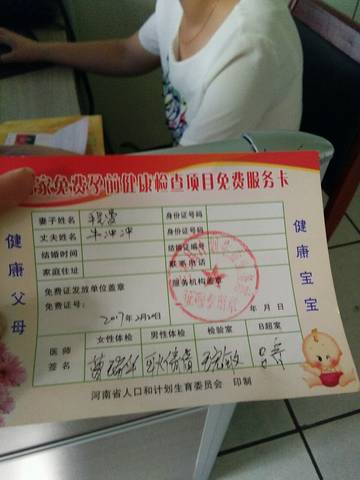 家免费孕前健康检查项目免费服务卡
健康父母
妻子姓名 身份证号码
丈夫姓名 牛冲冲 身份证号
结婚时间 结婚证编号
家庭住址 联系电话
免费证发放单位盖章 服务机构盖章
免费证号:
2017年2月20日 年 月 日
女性体检 男性体检 检验室 B超室
医师签名
健康宝宝
河南省人口和计划生育委员会 印制